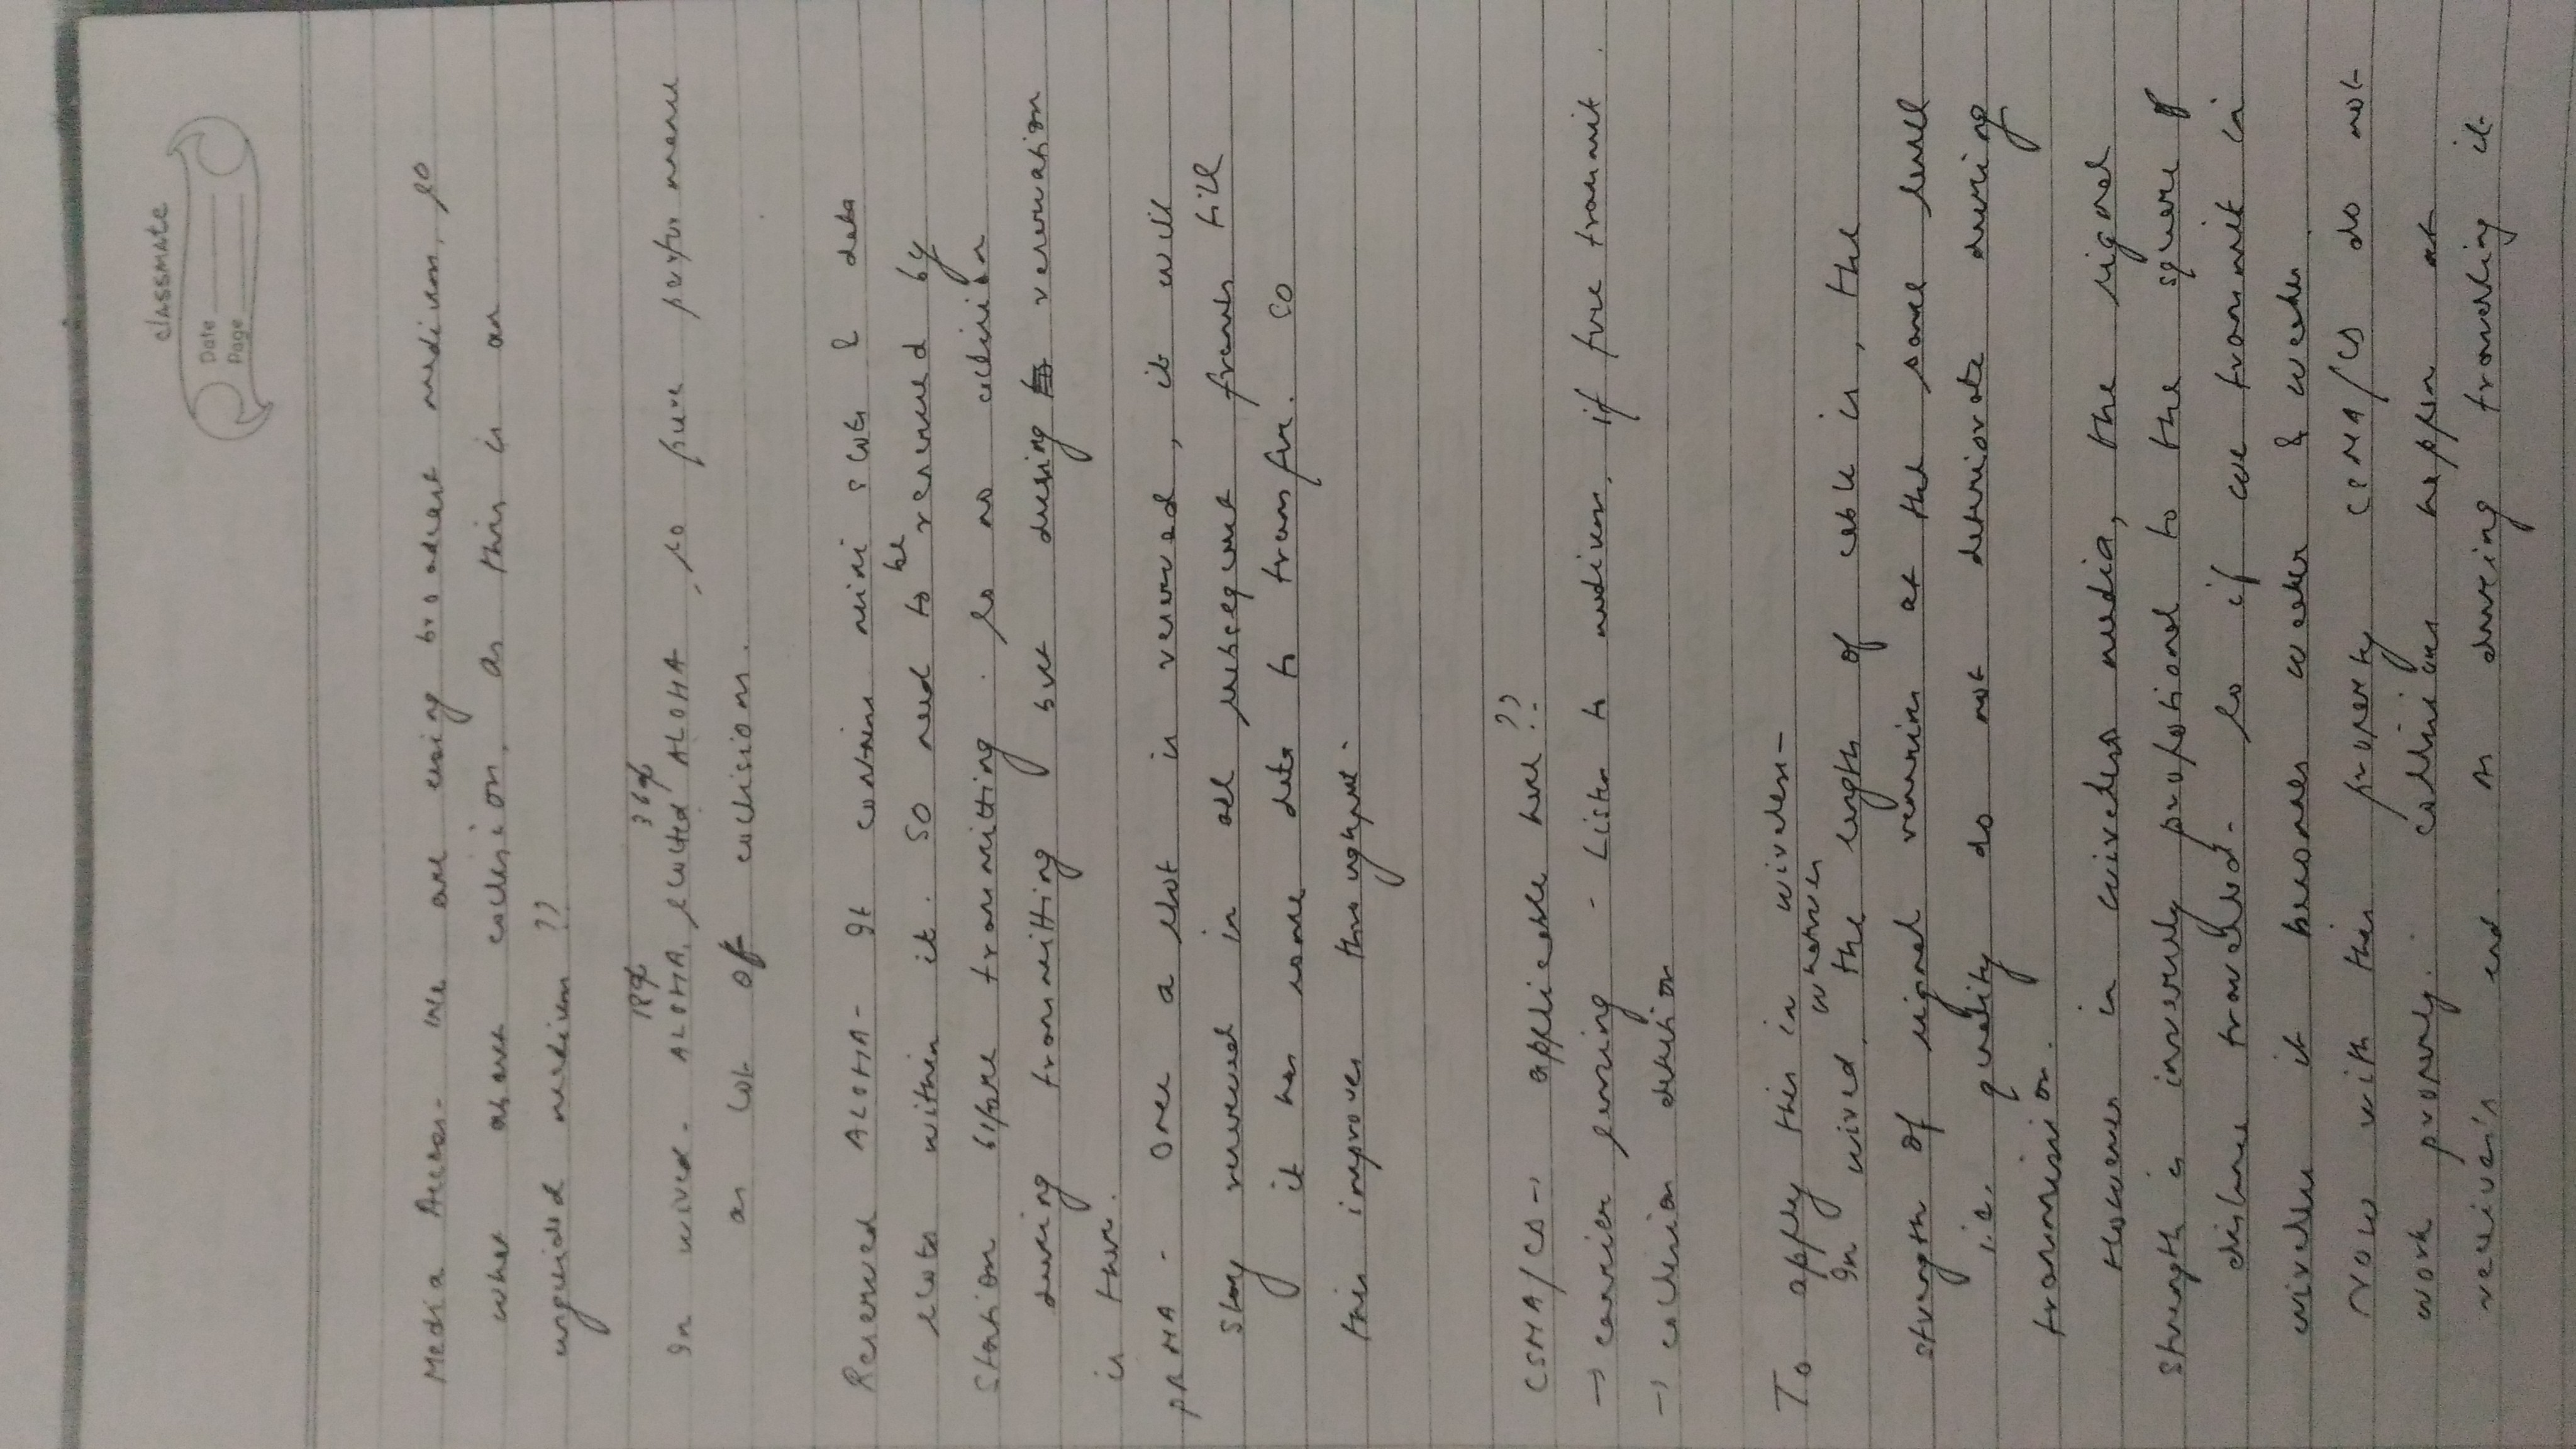 classmate
Date
Page
Media Access - We are using broadcast medium, so
what about collision, as this is an
unguided medium ??
18% 36%
In wired - ALOHA, slotted ALOHA, so pure performance
as lot of collisions.
Reserved ALOHA - It contains mini slots & data
slots within it. So need to be reserved by
station before transmitting. So no collision
during transmitting but during reservation
is there.
PRMA - Once a slot is reserved, it will
stay reserved in all subsequent frames till
it has some data to transfer. So
this improves throughput.
CSMA/CD → applicable here ??
→ carrier sensing - Listen to medium, if free transmit.
→ collision detection
To apply this in wireless -
whatever
In wired, the length of cable is, the
strength of signal remains at the same level
i.e. quality do not deteriorate during
transmission.
However in wireless media, the signal
strength is inversely propotional to the square of
distance travelled. So if we transmit in
wireless it becomes weaker & weaker.
Now with this property CSMA/CD do not
work properly. collisions happen at
receiver's end. As during travelling it